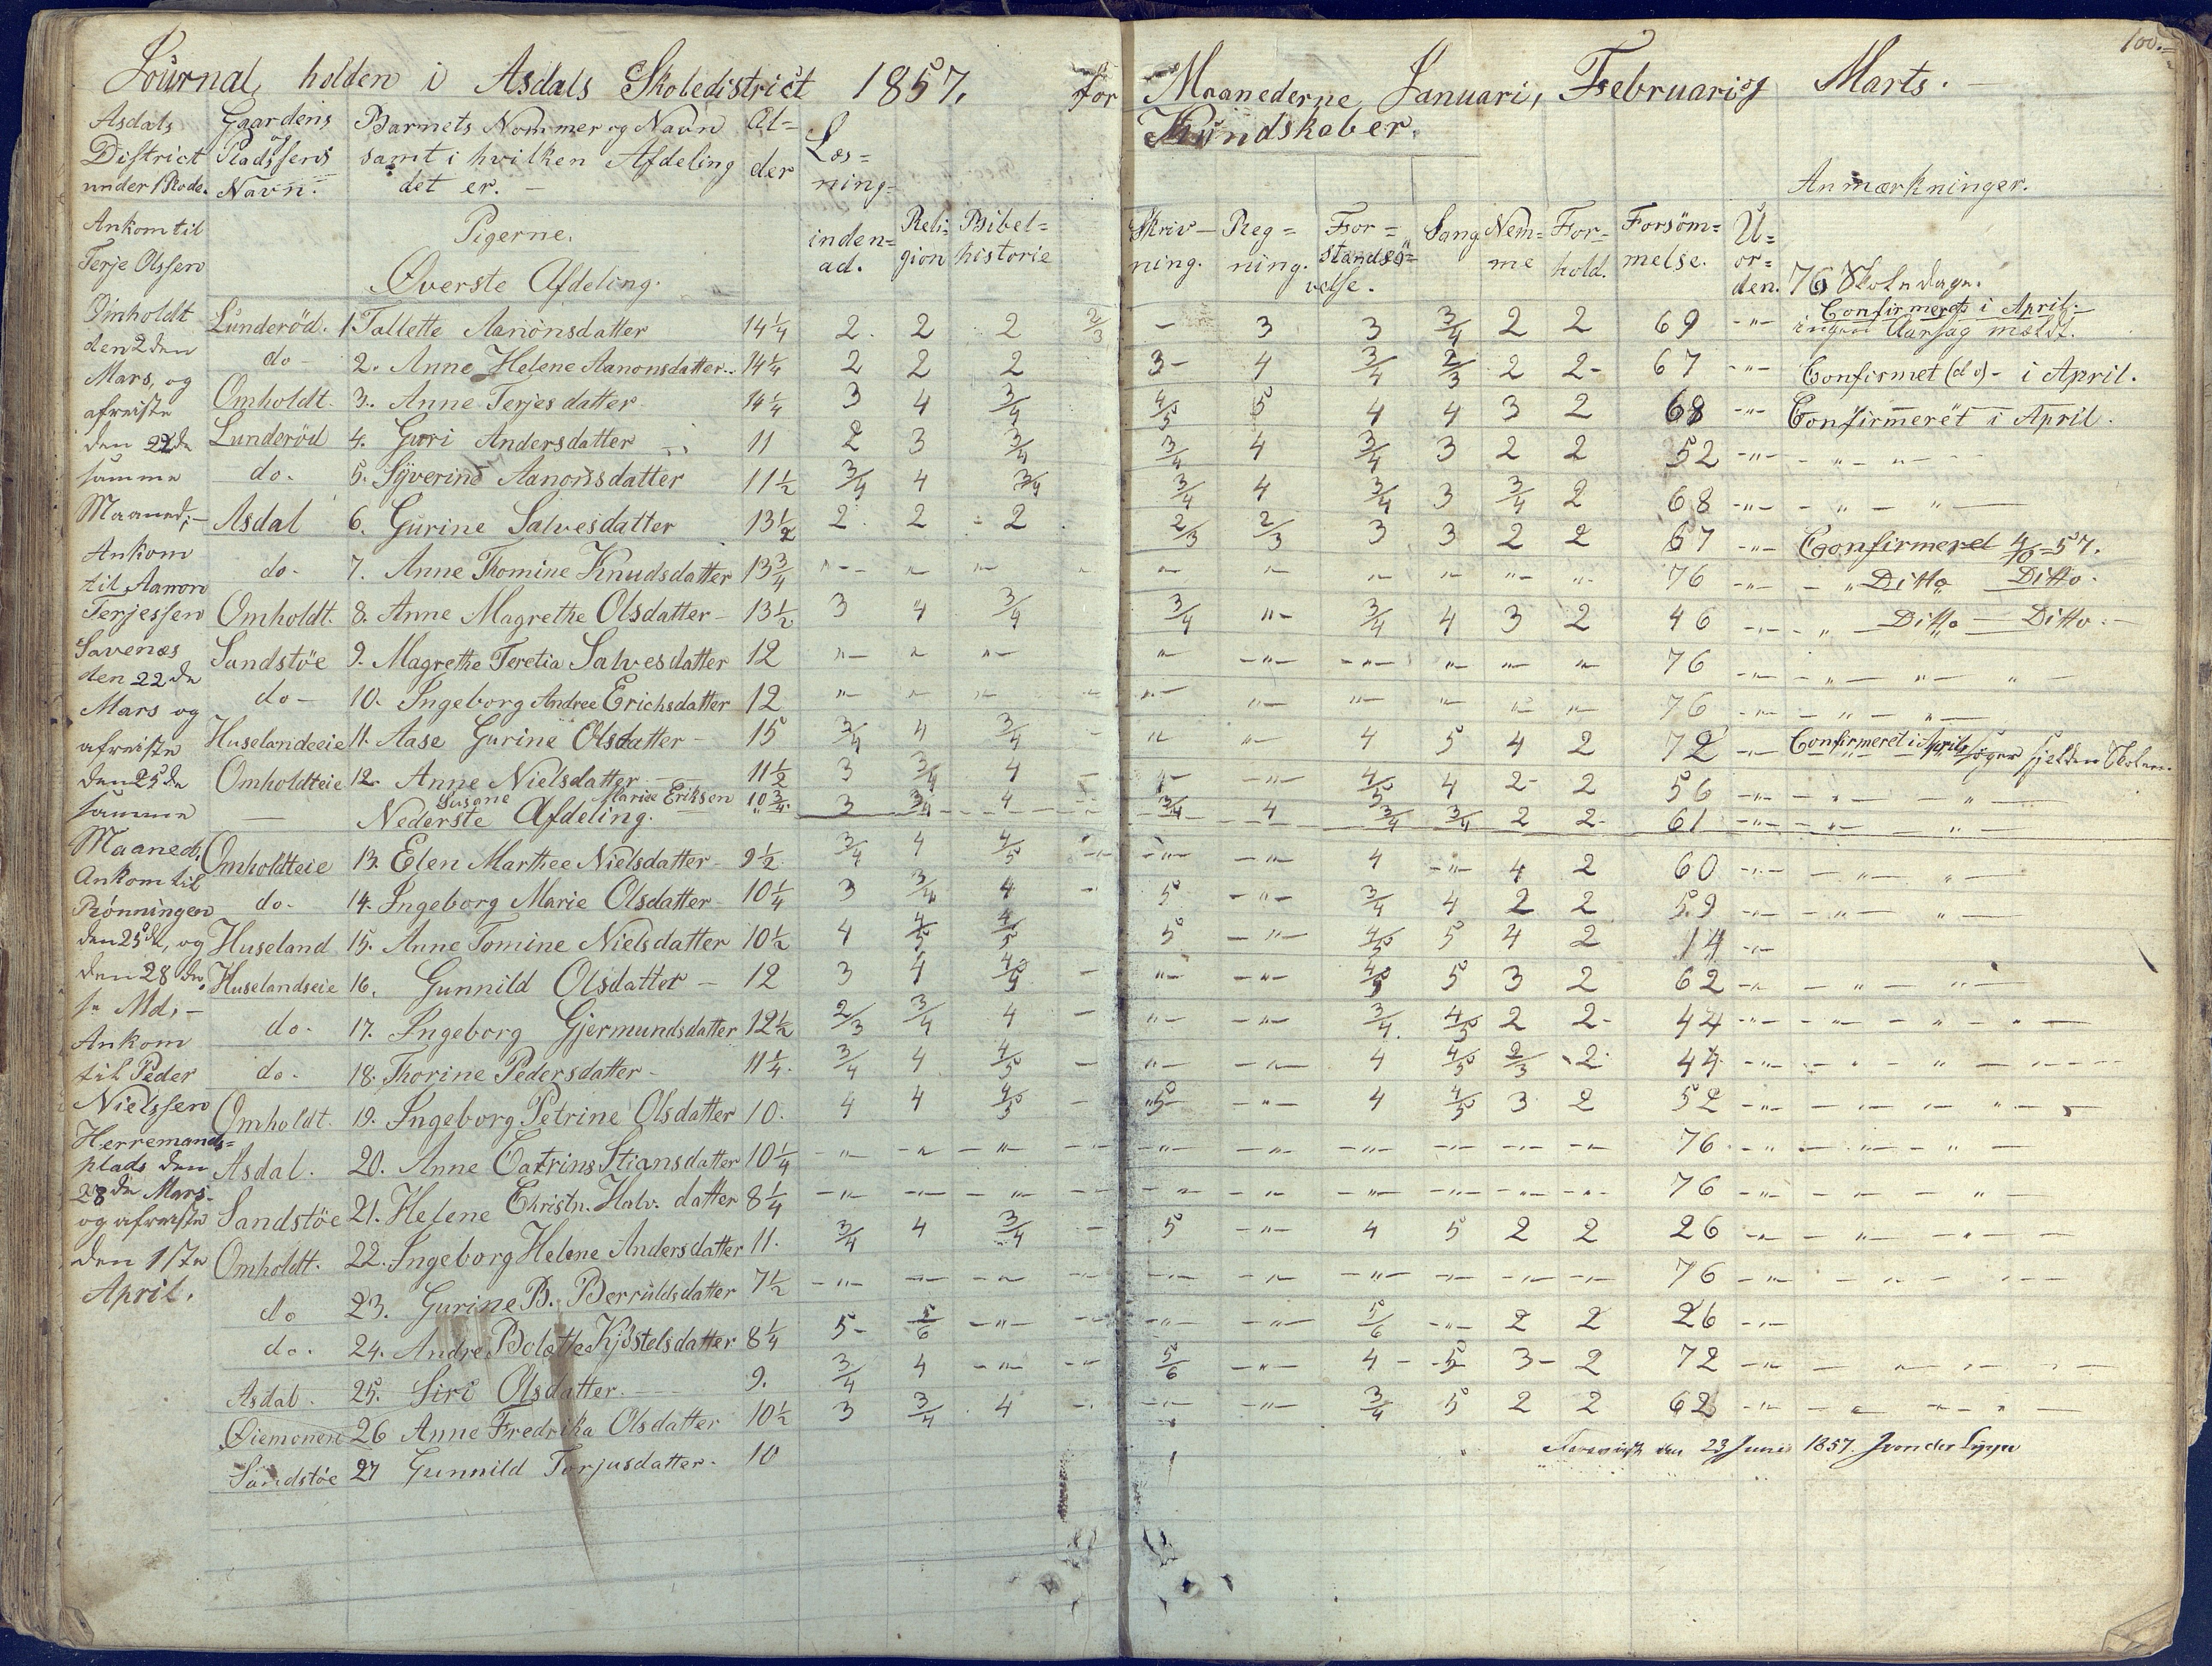 100.
Journal, holden i Asdals Skoledistrict 1857, for Maanederne Januari, Februari og Marts. –
Asdals District under 1 Rode.
Gaardens og Pladssens Navn.
Barnets Nommer og Navn samt i hvilken Afdeling det er. –
Al= der
Læs= ning=
Kundskaber.
Anmærkninger.
Ankom til
Terje Olssen
Omholdt
den 2den
Mars, og
afreiste
den 22de
samme
Maaned; –
Ankom
til Aanon
Terjessen
Savenæs
den 22de
Mars og
afreiste
den 25de
samme
Maaned;
Ankom til
Rønningen
den 25de, og
den 28de
s. Md; –
Ankom
til Peder
Nielssen
Herremands=
plads den
28de Mars
og afreiste
den 1ste
April.
Pigerne.
Øverste Afdeling.
inden= ad. Reli= gion Bibel= historie Skriv– ning. Reg= ning. For= standsö= velse. Sang Nem= me For= hold. Forsöm= melse. U= or= den. 76 Skoledage.
Lunderöd. 1 Tallette Aanonsdatter 14 1/4 2. 2 2 2/3 – 3 3 3/4 2 2 69 –"– Confirmeret i April. ingen Aarsag mældt.
do – 2. Anne Helene Aanonsdatter. 14 1/4 2 2 2 3– 4 3/4 2/3 2 2– 67 –"– Confirmet (do) – i April.
Omholdt. 3. Anne Terjesdatter 14 1/4 3 4 3/4 4/5 5 4 4 3 2 68 –"– Confirmeret i April.
Lunderöd 4. Guri Andersdatter 11 2 3 3/4 3/4 4 3/4 3 2 2 52 –"– – " – " –
do. 5. Syverine Aanonsdatter 11 1/2 3/4 4 3/4 3/4 4 3/4 3 3/4 2 68 –"– – " – " –
Asdal 6. Gurine Salvesdatter 13 1/2 2. 2 2 2/3 2/3 3 3 2 2 67 –"– Confirmeret 4/10–57.
do. 7. Anne Thomine Knudsdatter 13 3/4 "– "– "– " "– "– "– "– "– "– 76 –"– – " Ditto Ditto.
Omholdt. 8. Anne Magrethe Olsdatter – 13 1/2 3 4 3/4 3/4 "– 3/4 4 3 2 46 –"– " – Ditto – Ditto. –
Sandstöe 9. Magrethe Teretia Salvesdatter 12 "– " "– " –"– –"– "– "– " 76 –"– – " – " – " –
do – 10. Ingeborg Andree Erichsdatter 12 "– "– "– "– "– "– "– "– "– 76 –"– – " – " –
Huselandeeie 11. Aase Gurine Olsdatter – 15 3/4 4 3/4 – "– "– 4 5 4 2 72 –"– Confirmeret i April, søger sjelden Skolen.
Omholdteie 12. Anne Nielsdatter 11 1/2 3 3/4 4 – 4– –"– 4/5 4 2– 2 56 –"– – " – " –
Susane Mariee Eriksen 10 3/4 3 3/4 4 – 3/4 4 3/4 3/4 2 2– 61 –"– – " – " –
Nederste Afdeling.
Omholdteie 13. Elen Marthee Nielsdatter – 9 1/2 3/4 4 4/5 –"– –"– –"– 4 –"– 4 2 60 –"– – " – " –
do. 14. Ingeborg Marie Olsdatter 10 1/4 3 3/4 4 – 5 –"– 3/4 4 2 2 59 –"– – " – " –
Huseland 15. Anne Tomine Nielsdatter 10 1/2 4 4/5 4/5 5 –"– 4/5 5 4 2 14 –"–
Huselandseie 16. Gunnild Olsdatter – 12 3 4 4/5 – "– –"– 4/5 5 3 2 62 –"– – " – " –
do. 17. Ingeborg Gjermundsdatter 12 1/2 2/3 3/4 4 – "– –"– 3/4 4/5 2 2– 44 –"– – " – " – " –
do. 18. Thorine Pedersdatter – 11 1/4. 3/4 4 4/5 – "– –"– 4 4/5 2/3 2 44 –"– – " – " –
Omholdt. 19. Ingeborg Petrine Olsdatter 10. 4 4 4/5 – 5 –"– 4 4/5 3 2 52 –"– – " – " –
Asdal. 20. Anne Catrine Stiansdatter 10 1/4 –"– –"– –"– –"– –"– –"– –"– –"– –"– –"– 76 –"– – " – " –
Sandstöe 21. Helene Christn. Halv. datter 8 1/4 –"– –"– –"– –"– –"– –"– –"– –"– –"– –"– 76 –"– – " – " –
Omholdt. 22. Ingeborg Helene Andersdatter 11. 3/4 4 3/4 – 5 –"– 4 5 2 2 26 –"– – " – " –
do 23. Gurine B. Berruldsdatter 7 1/2 –"– –"– –"– –"– –"– –"– –"– –"– –"– –"– 76 –"– – " – " –
do. 24. Andre Bolette Kjöstelsdatter 8 1/4 5– 5/6 –"– –"– –"– –"– 5/6 –"– 2 2 26 –"–
Asdal. 25. Siri Olsdatter. 9. 3/4 4 –"– –"– 5/6 –"– 4– 5 3– 2 72 –"– – " – " –
Øiemonen 26 Anne Fredrika Olsdatter 10 1/2 3 3/4 4 –"– –"– –"– 3/4 5 2 2 62 –"– – " – " –
Sandstöe 27 Gunnild Torjusdatter. 10
den 23 Juni 1857.